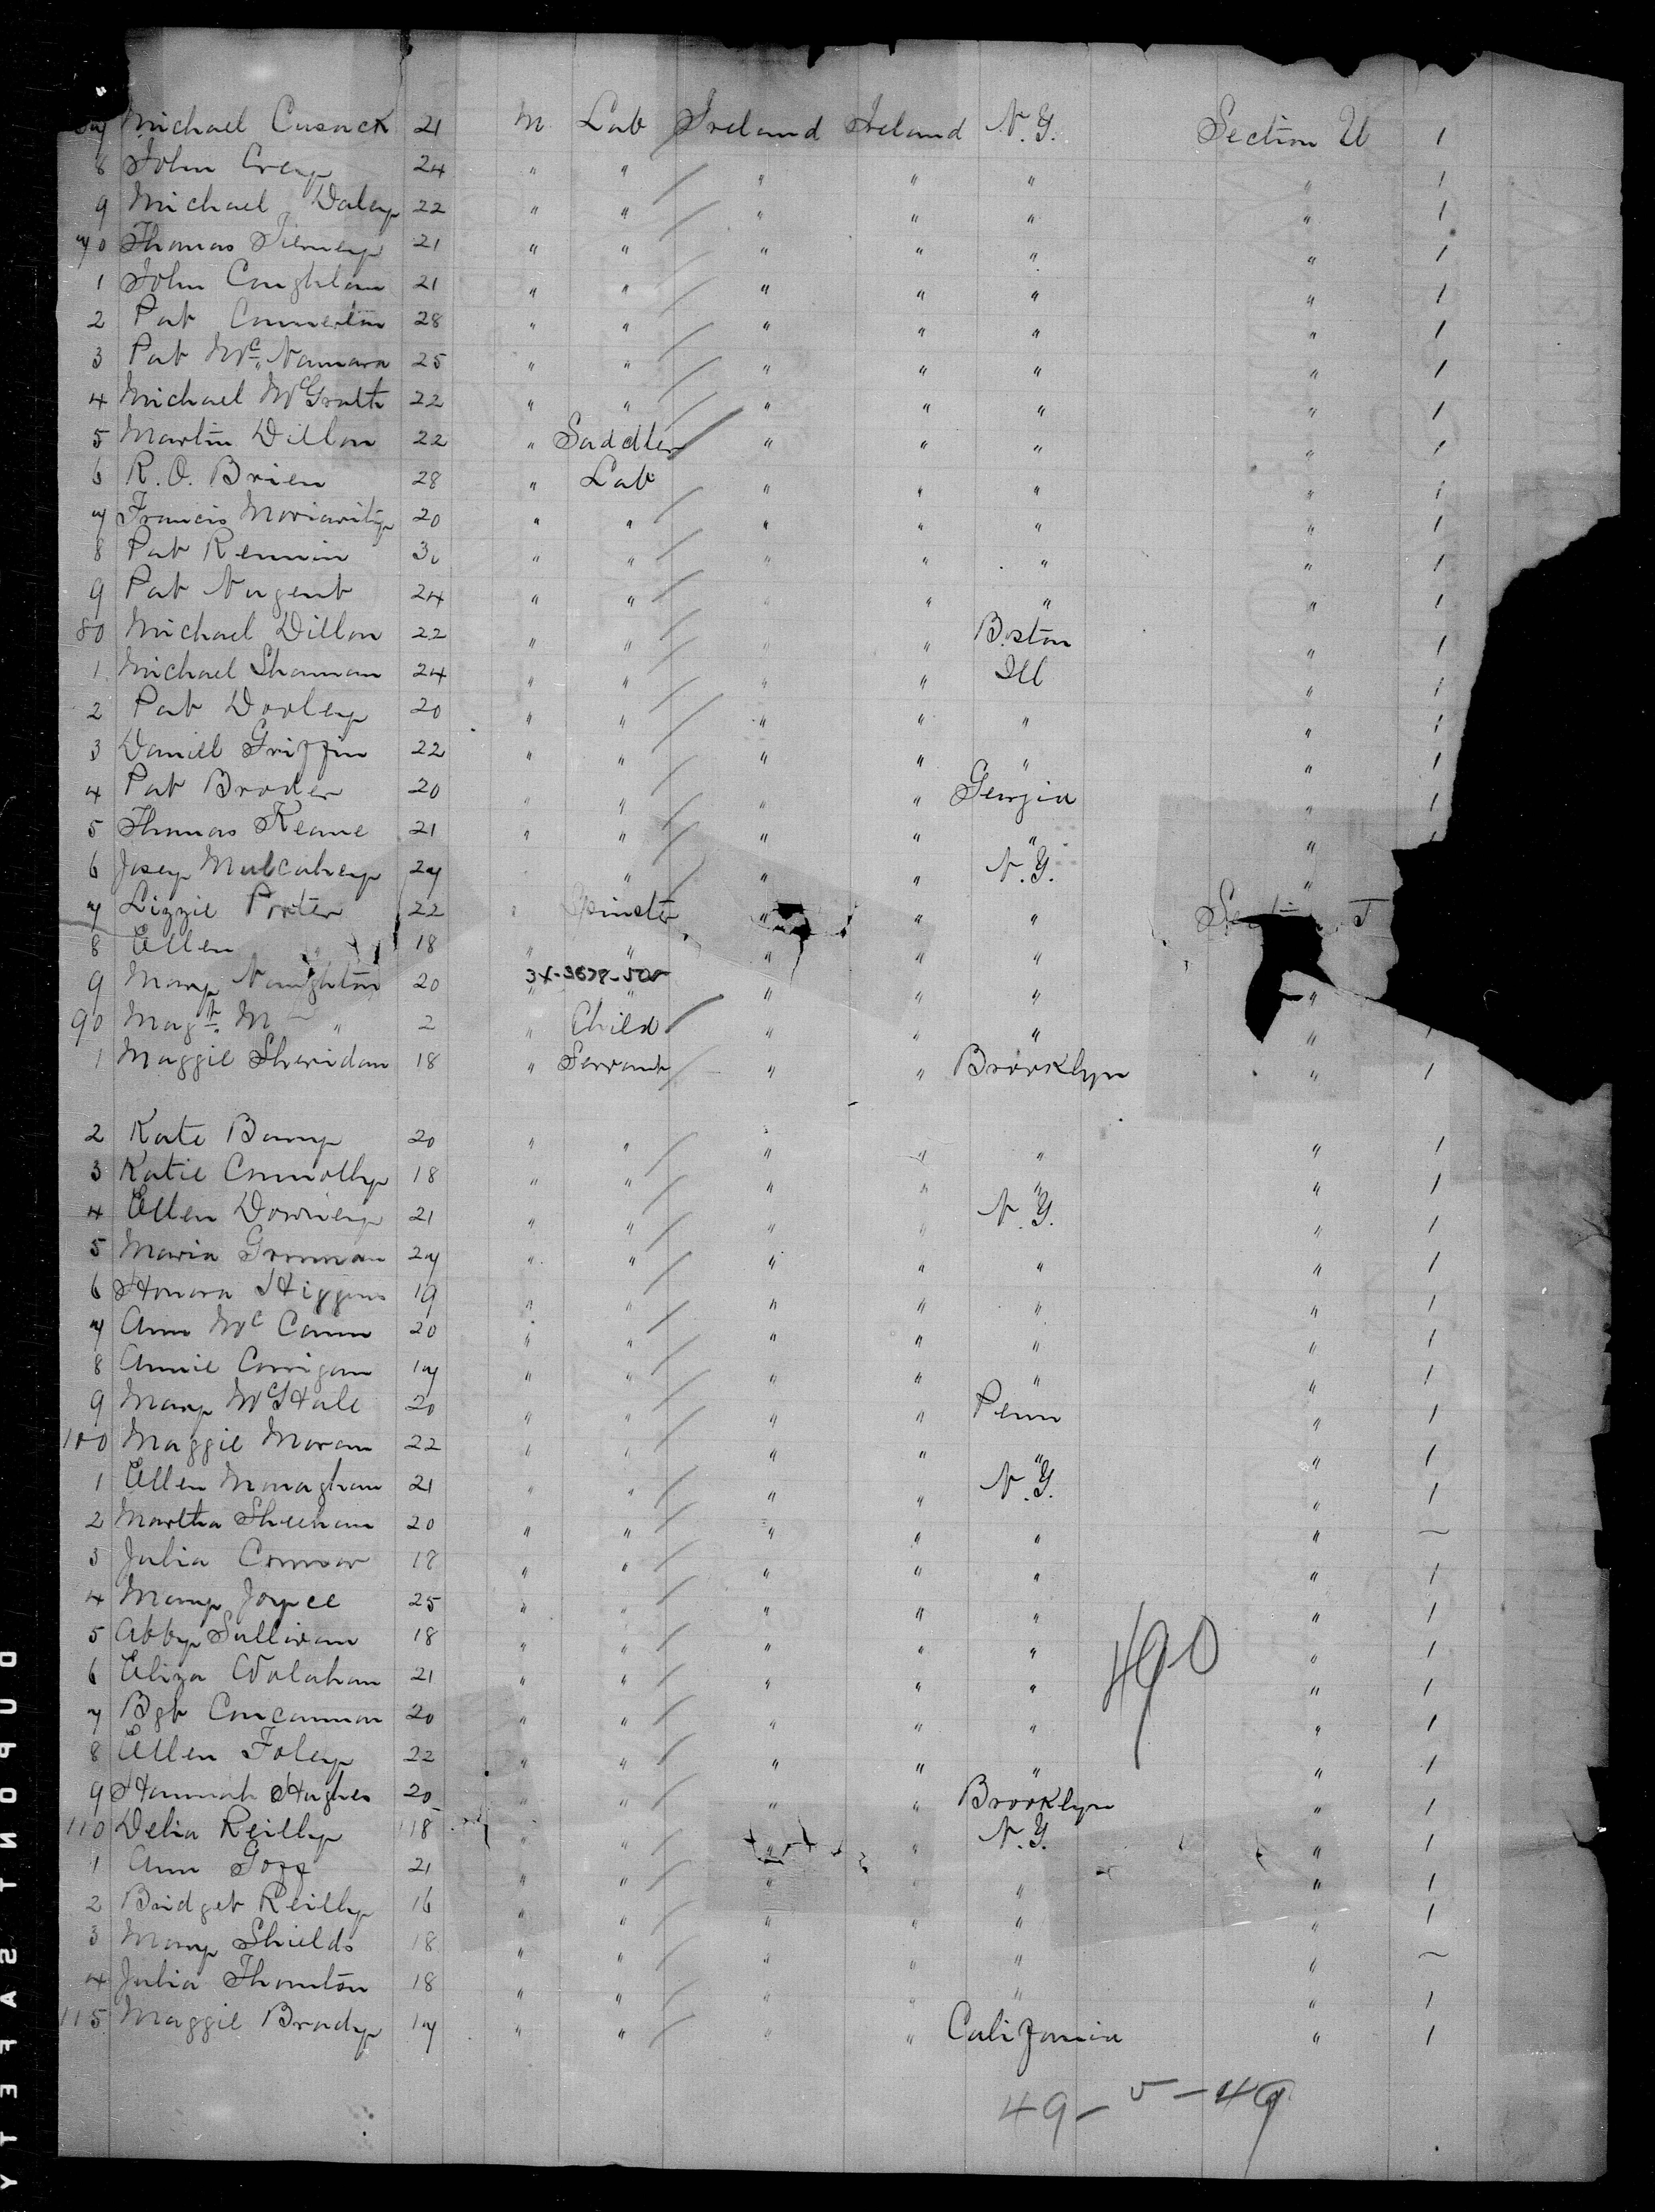 67 Michael Cusack 21 M Lab Ireland Ireland N.Y. Section U 1
8 John Creay 24 " " " " " " 1
9 Michael Daley 22 " " " " " " 1
70 Thomas Tierney 21 " " " " " " 1
1 John Coughlan 21 " " " " " " 1
2 Pat Connerton 28 " " " " " " 1
3 Pat McNamara 25 " " " " " " 1
4 Michael McGrath 22 " " " " " " 1
5 Martin Dillon 22 " Saddler " " " " 1
6 R. O. Brien 28 " Lab " " " " 1
7 Francis Moriarity 20 " " " " " " 1
8 Pat Rennin 30 " " " " " " 1
9 Pat Nugent 24 " " " " " " 1
80 Michael Dillon 22 " " " " Boston " 1
1 Michael Shannan 24 " " " " Ill " 1
2 Pat Dooley 20 " " " " " " 1
3 Daniel Griffin 22 " " " " " " 1
4 Pat Broder 20 " " " " Georgia " 1
5 Thomas Keane 21 " " " " " " 1
6 Josey Mulcahey 27 " " " N.Y. "
7 Lizzie Porter 22 " Spinster " " " T
8 Ellen " 18 " " " " "
9 Mary Naughton 20 " " " " " "
3x-3678-500
90 Magt. M " 2 " Child " " " " 1
1 Maggie Sheridan 18 " Servant " " Brooklyn " 1
2 Kate Barry 20 " " " " " " 1
3 Katie Connolly 18 " " " " " " 1
4 Ellen Downey 21 " " " " N.Y. " 1
5 Maria Gorman 27 " " " " " " 1
6 Honora Higgins 19 " " " " " " 1
7 Ann McCann 20 " " " " " " 1
8 Annie Corrigan 17 " " " " " " 1
9 Mary McHale 20 " " " " Penn " 1
100 Maggie Moran 22 " " " " " " 1
1 Ellen Monaghan 21 " " " " N.Y. " 1
2 Martha Sheehan 20 " " " " " " ~
3 Julia Connor 18 " " " " " " 1
4 Mary Joyce 25 " " " " " " 1
5 Abby Sullivan 18 " " " " " " 1
6 Eliza Wolahan 21 " " " " " " 1
490
7 Bgt Concannon 20 " " " " " " 1
8 Ellen Foley 22 " " " " " " 1
9 Hannah Hughes 20 " " " " Brooklyn " 1
110 Delia Reilly 18 " " " " N.Y. " 1
1 Ann Goff 21 " " " " " " 1
2 Bridget Reilly 16 " " " " " " 1
3 Mary Shields 18 " " " " " " ~
4 Julia Thornton 18 " " " " " " 1
115 Maggie Brady 17 " " " " California " 1
49-5-49
DUPONT SAFETY